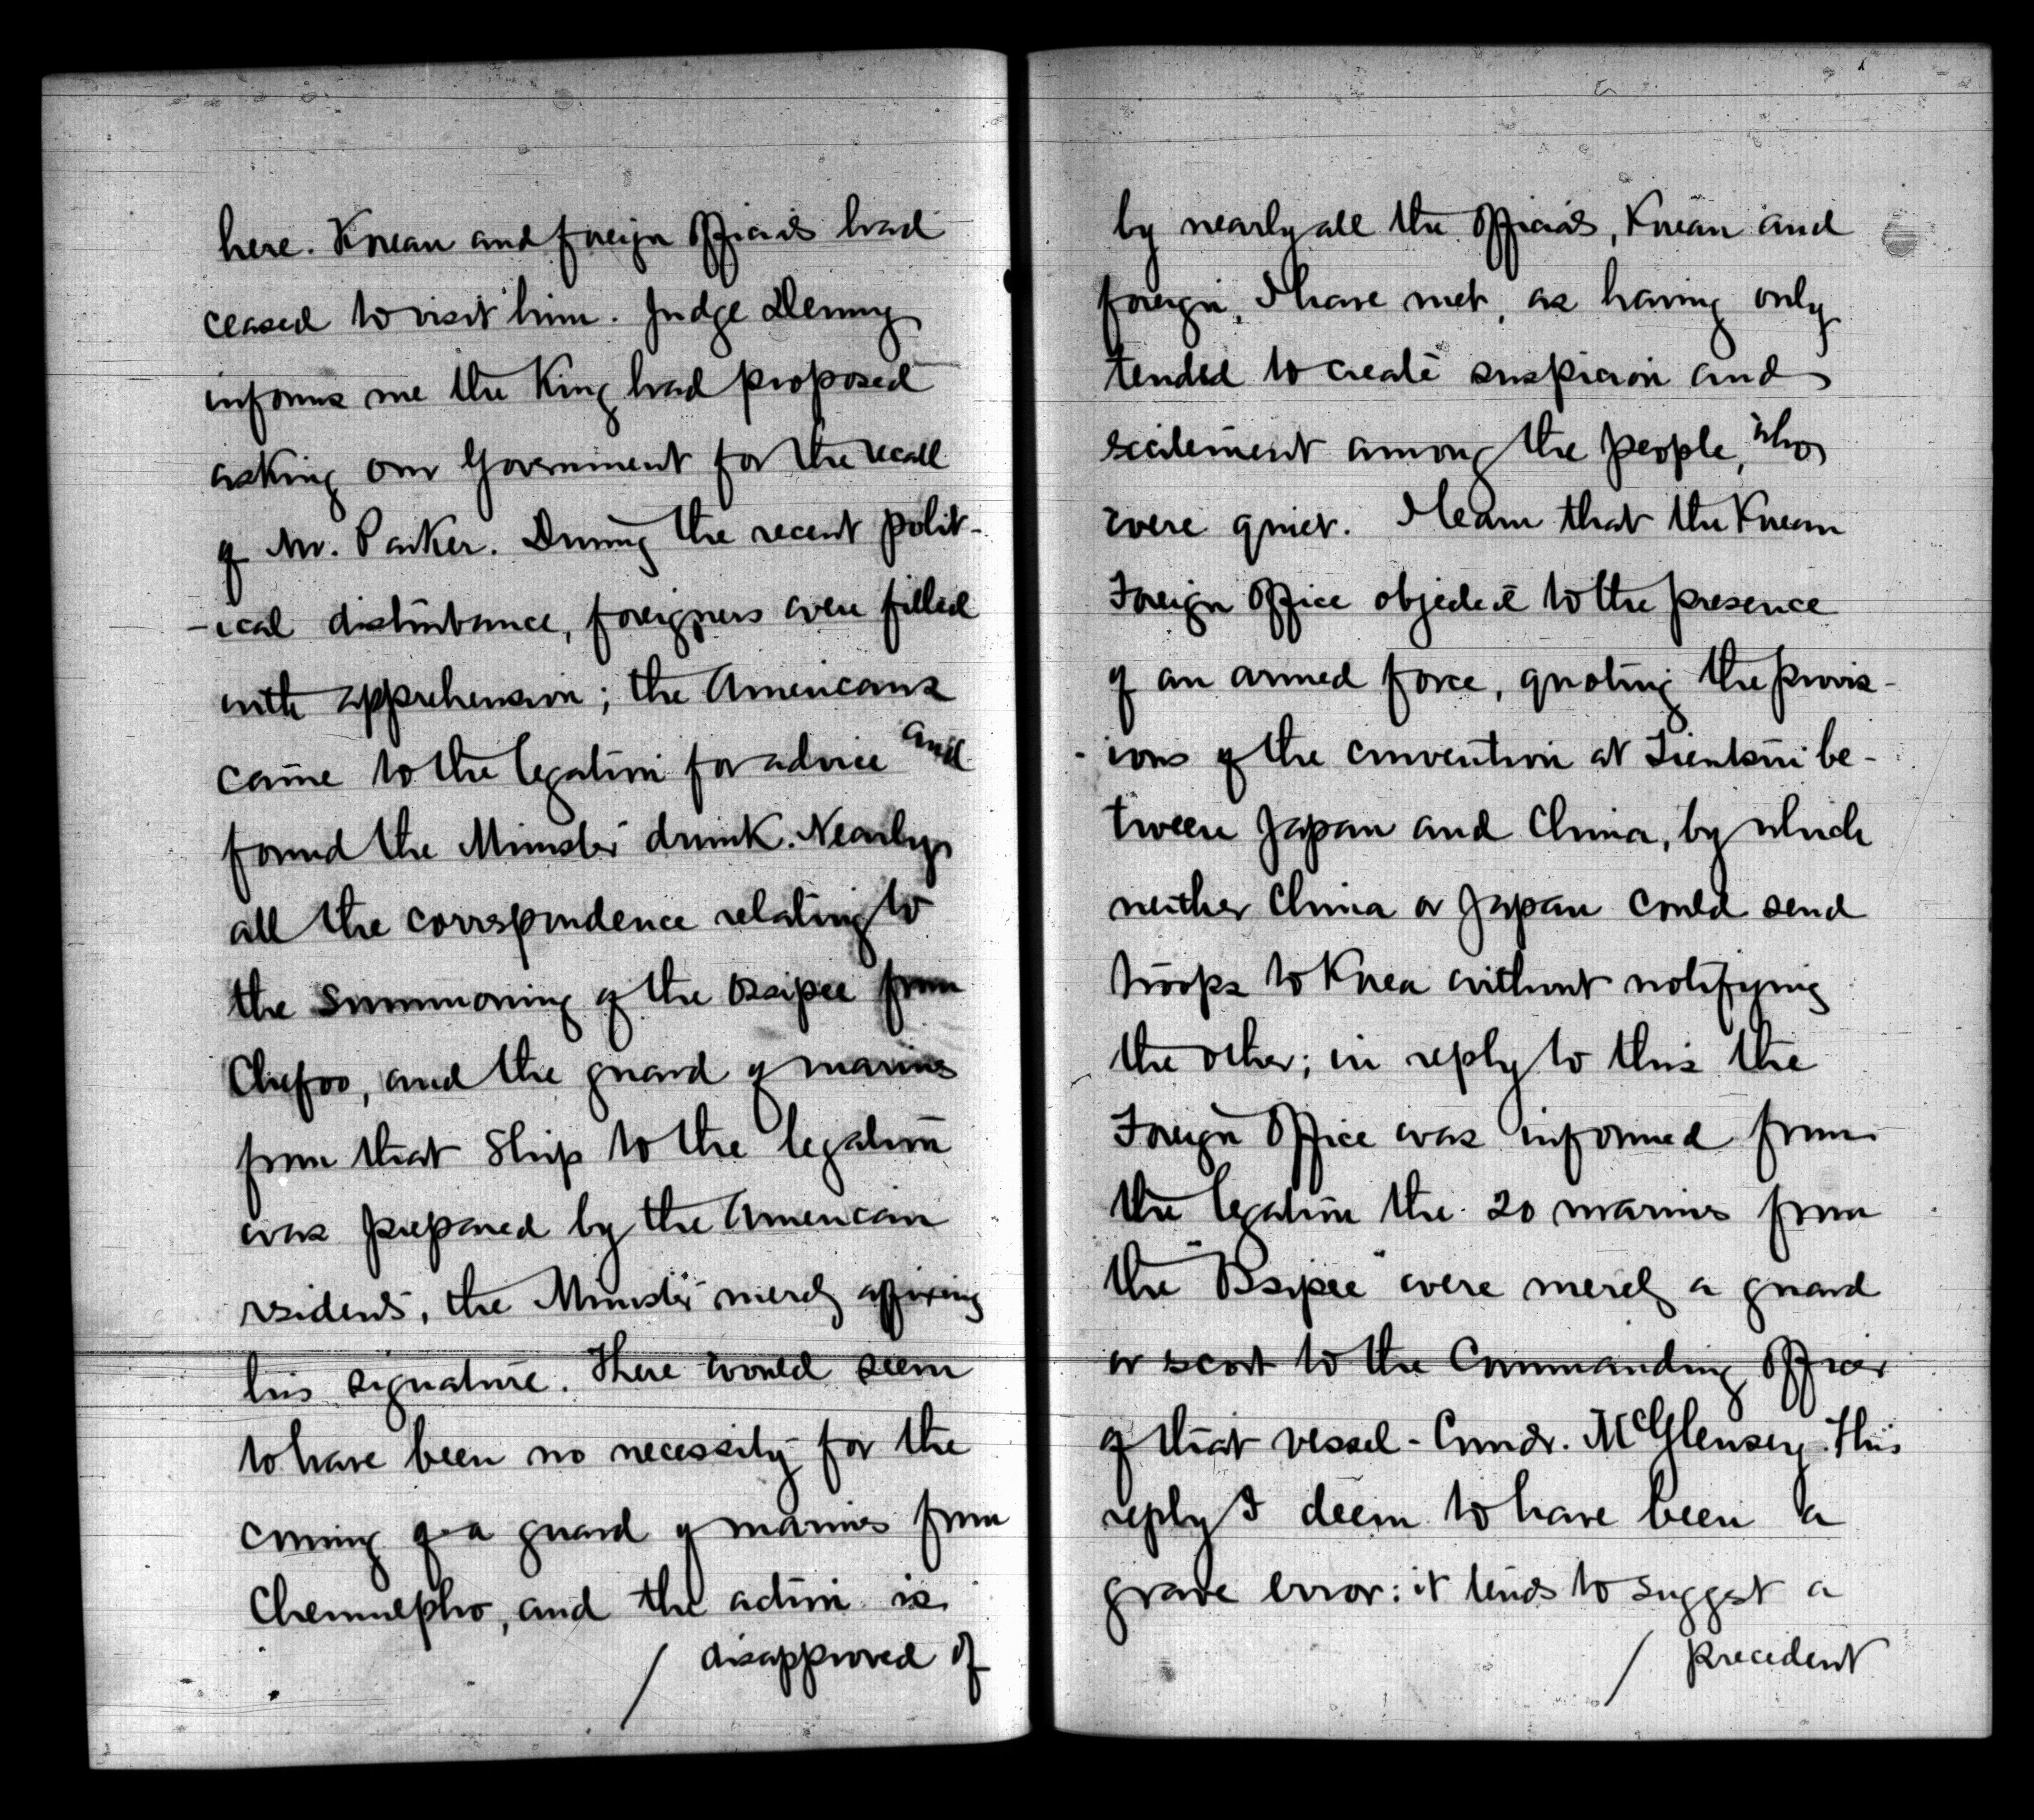 here. Korean and foreign officials had
ceased to visit him. Judge Denny
informs me the King had proposed
asking our Government for the recall
of Mr. Parker. During the recent polit-
-ical disturbance, foreigners were filled
with apprehension; the Americans
came to the legation for advice and
found the Minister drunk. Nearly
all the corrspondence relating to
the summoning of the Ossipee from
Chefoo, and the guard of marines
from that Ship to the legation
was prepared by the American
residents, the Minister merely affixing
his signature. There would seem
to have been no necessity for the
coming of a guard of marines from
Chemulpho, and the action is
/ disapproved of
by nearly all the officials, Korean and
foreign, I have met, as having only
tended to create suspicion and
excitement among the people, who
were quiet. I learn that the Korean
Foreign Office objected to the presence
of an armed force, quoting the provis-
-ions of the convention at Tientsin be-
tween Japan and China, by which
neither China or Japan could send
troops to Korea without notifying
the other; in reply to this the
Foreign Office was informed from
the legation the 20 marines from
the "Ossipee" were merely a guard
or escort to the Commanding Officer
of that vessel - Comdr. McGlensey. This
reply I deem to have been a
grave error: it tends to suggest a
/ precedent